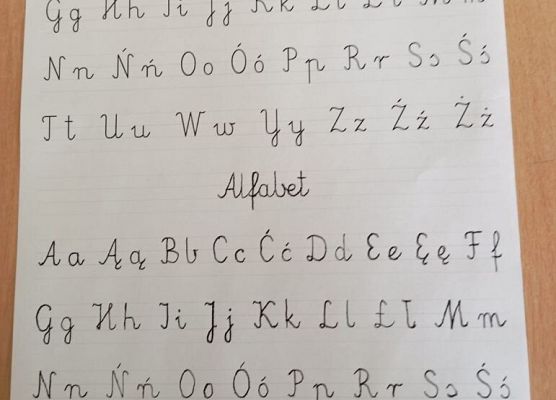 Gg Hh Ii Jj Kk Ll Łł Mm
Nn Ńń Oo Óó Pp Rr Ss Śś
Tt Uu Ww Yy Zz Źź Żż
Alfabet
Aa Ąą Bb Cc Ćć Dd Ee Ęę Ff
Gg Hh Ii Jj Kk Ll Łł Mm
Nn Ńń Oo Óó Pp Rr Ss Śś